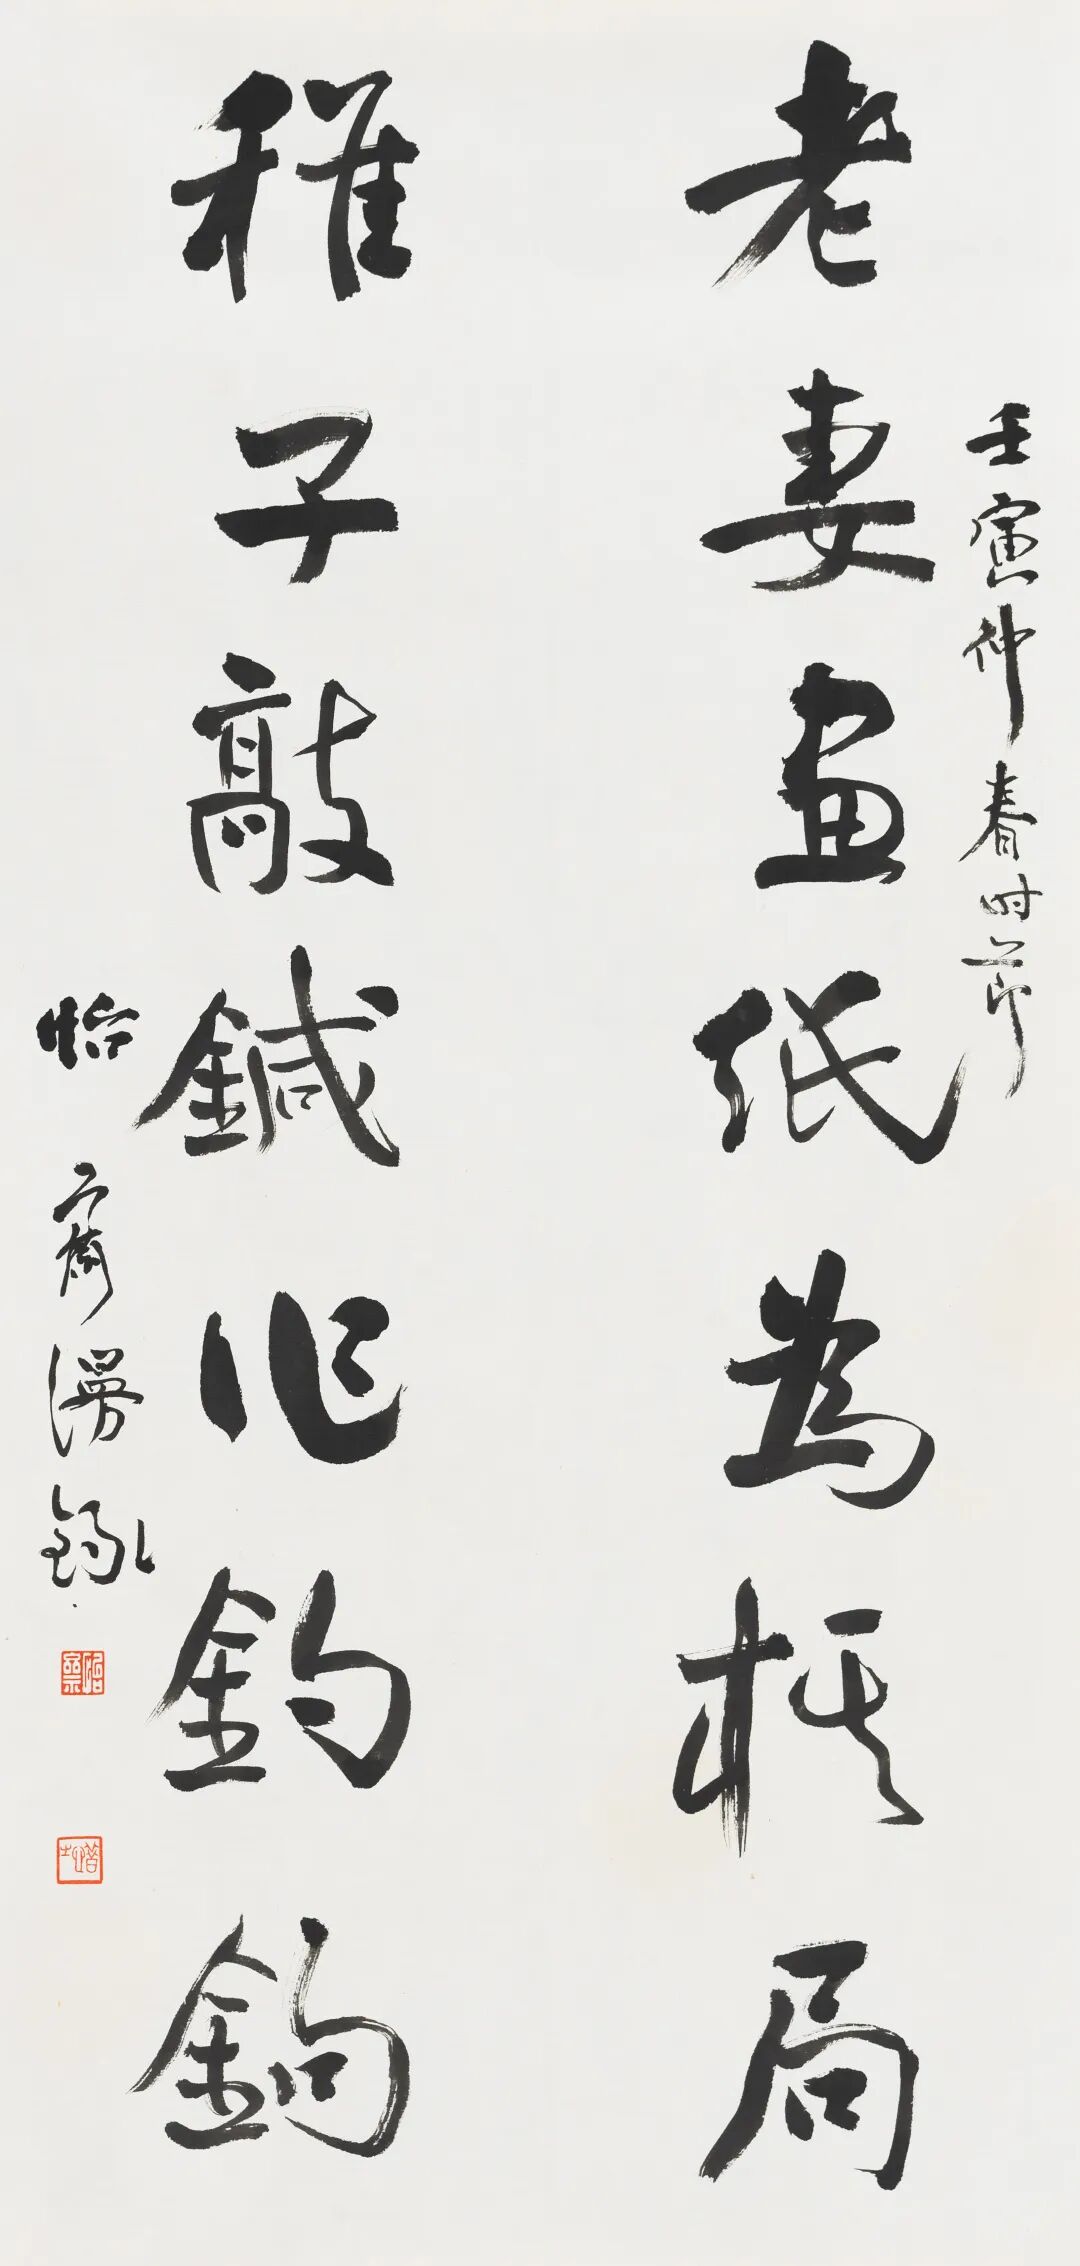 壬寅仲春时節
老妻畫紙為棋局
稚子敲鍼作釣鉤
怡齋漫錄